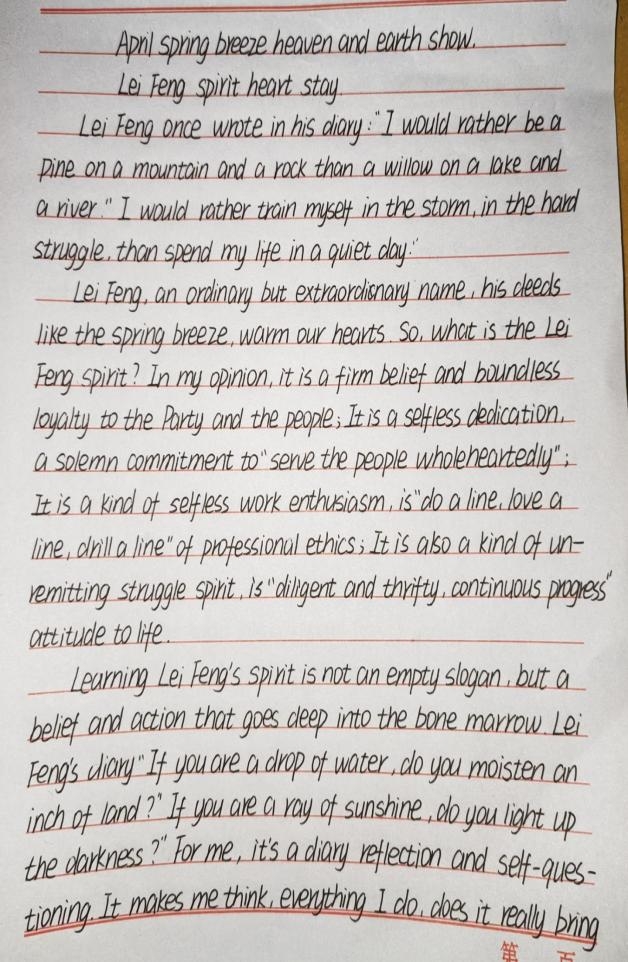 April spring breeze heaven and earth show.
Lei Feng spirit heart stay.
Lei Feng once wrote in his diary: "I would rather be a
pine on a mountain and a rock than a willow on a lake and
a river." I would rather train myself in the storm, in the hard
struggle, than spend my life in a quiet day."
Lei Feng, an ordinary but extraordisnary name, his deeds
like the spring breeze, warm our hearts. So, what is the Lei
Feng spirit? In my opinion, it is a firm belief and boundless
loyalty to the Party and the people; It is a selfless dedication,
a solemn commitment to "serve the people wholeheartedly";
It is a kind of selfless work enthusiasm, is "do a line, love a
line, drill a line" of professional ethics; It is also a kind of un-
remitting struggle spirit, is "diligent and thrifty, continuous progress"
attitude to life.
Learning Lei Feng's spirit is not an empty slogan, but a
belief and action that goes deep into the bone marrow. Lei
Feng's diary "If you are a drop of water, do you moisten an
inch of land?" If you are a ray of sunshine, do you light up
the darkness?" For me, it's a diary reflection and self-ques-
tioning. It makes me think, everything I do, does it really bring
第 页